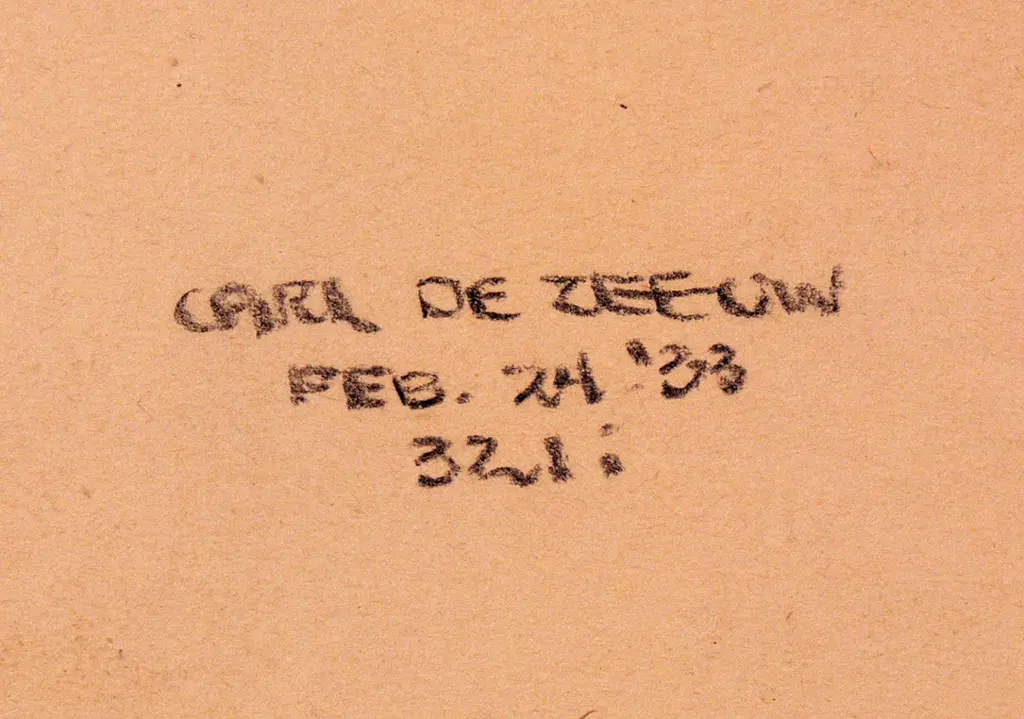 CARL DE ZEEUW
FEB. 24 '33
321i